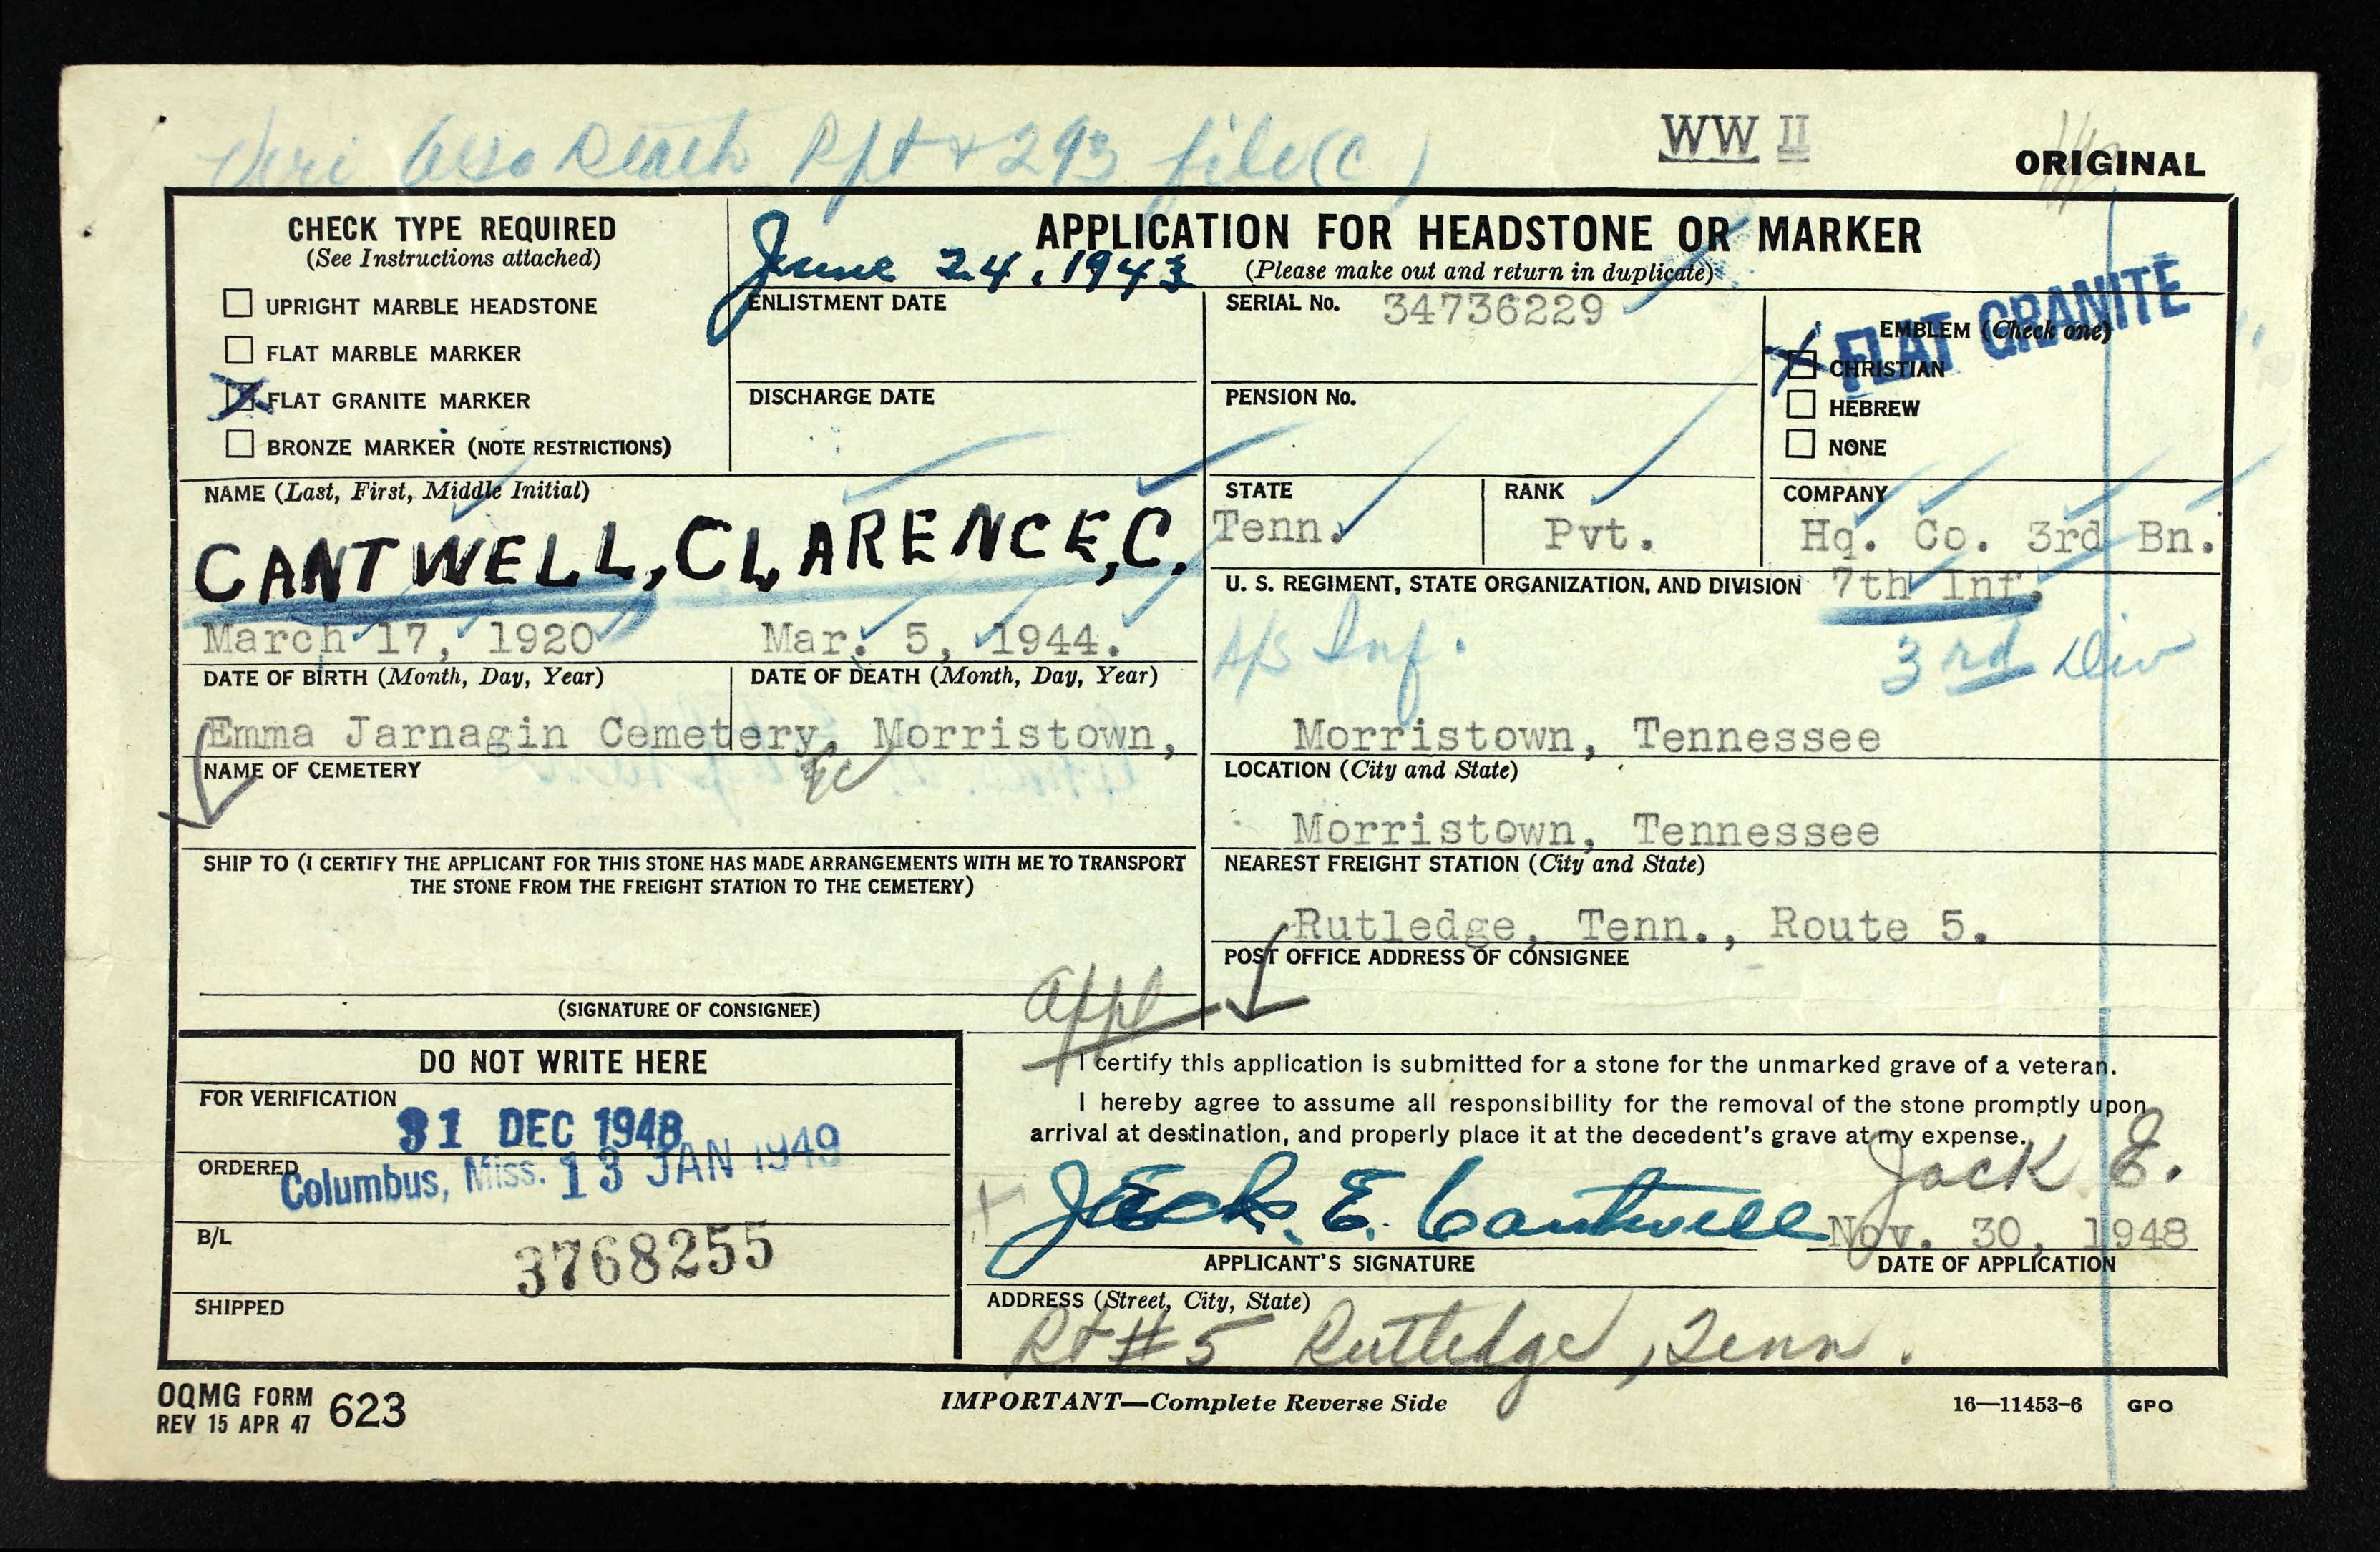 Veri Death Rpt + 293 file (C)
WW II
ORIGINAL
CHECK TYPE REQUIRED
(See Instructions attached)
UPRIGHT MARBLE HEADSTONE
FLAT MARBLE MARKER
X FLAT GRANITE MARKER
BRONZE MARKER (NOTE RESTRICTIONS)
APPLICATION FOR HEADSTONE OR MARKER
(Please make out and return in duplicate)
June 24, 1943
ENLISTMENT DATE
SERIAL No. 34736229
DISCHARGE DATE
PENSION No.
FLAT GRANITE
EMBLEM (Check one)
X CHRISTIAN
HEBREW
NONE
NAME (Last, First, Middle Initial)
CANTWELL, CLARENCE, C.
STATE
Tenn.
RANK
Pvt.
COMPANY
Hq. Co. 3rd Bn.
U. S. REGIMENT, STATE ORGANIZATION, AND DIVISION 7th Inf.
Inf. 3rd Div
March 17, 1920
DATE OF BIRTH (Month, Day, Year)
Mar. 5, 1944.
DATE OF DEATH (Month, Day, Year)
Emma Jarnagin Cemetery, Morristown,
NAME OF CEMETERY
Morristown, Tennessee
LOCATION (City and State)
Morristown, Tennessee
NEAREST FREIGHT STATION (City and State)
SHIP TO (I CERTIFY THE APPLICANT FOR THIS STONE HAS MADE ARRANGEMENTS WITH ME TO TRANSPORT
THE STONE FROM THE FREIGHT STATION TO THE CEMETERY)
Rutledge, Tenn., Route 5.
POST OFFICE ADDRESS OF CONSIGNEE
(SIGNATURE OF CONSIGNEE)
appl
DO NOT WRITE HERE
FOR VERIFICATION
31 DEC 1948
ORDERED
Columbus, Miss. 13 JAN 1949
B/L
3768255
SHIPPED
I certify this application is submitted for a stone for the unmarked grave of a veteran.
I hereby agree to assume all responsibility for the removal of the stone promptly upon
arrival at destination, and properly place it at the decedent's grave at my expense.
Jack E.
Jack. E. Cantwell
Nov. 30, 1948
APPLICANT'S SIGNATURE
DATE OF APPLICATION
ADDRESS (Street, City, State)
Rt # 5 Rutledge, Tenn.
OQMG FORM 623
REV 15 APR 47
IMPORTANT—Complete Reverse Side
16—11453-6 GPO